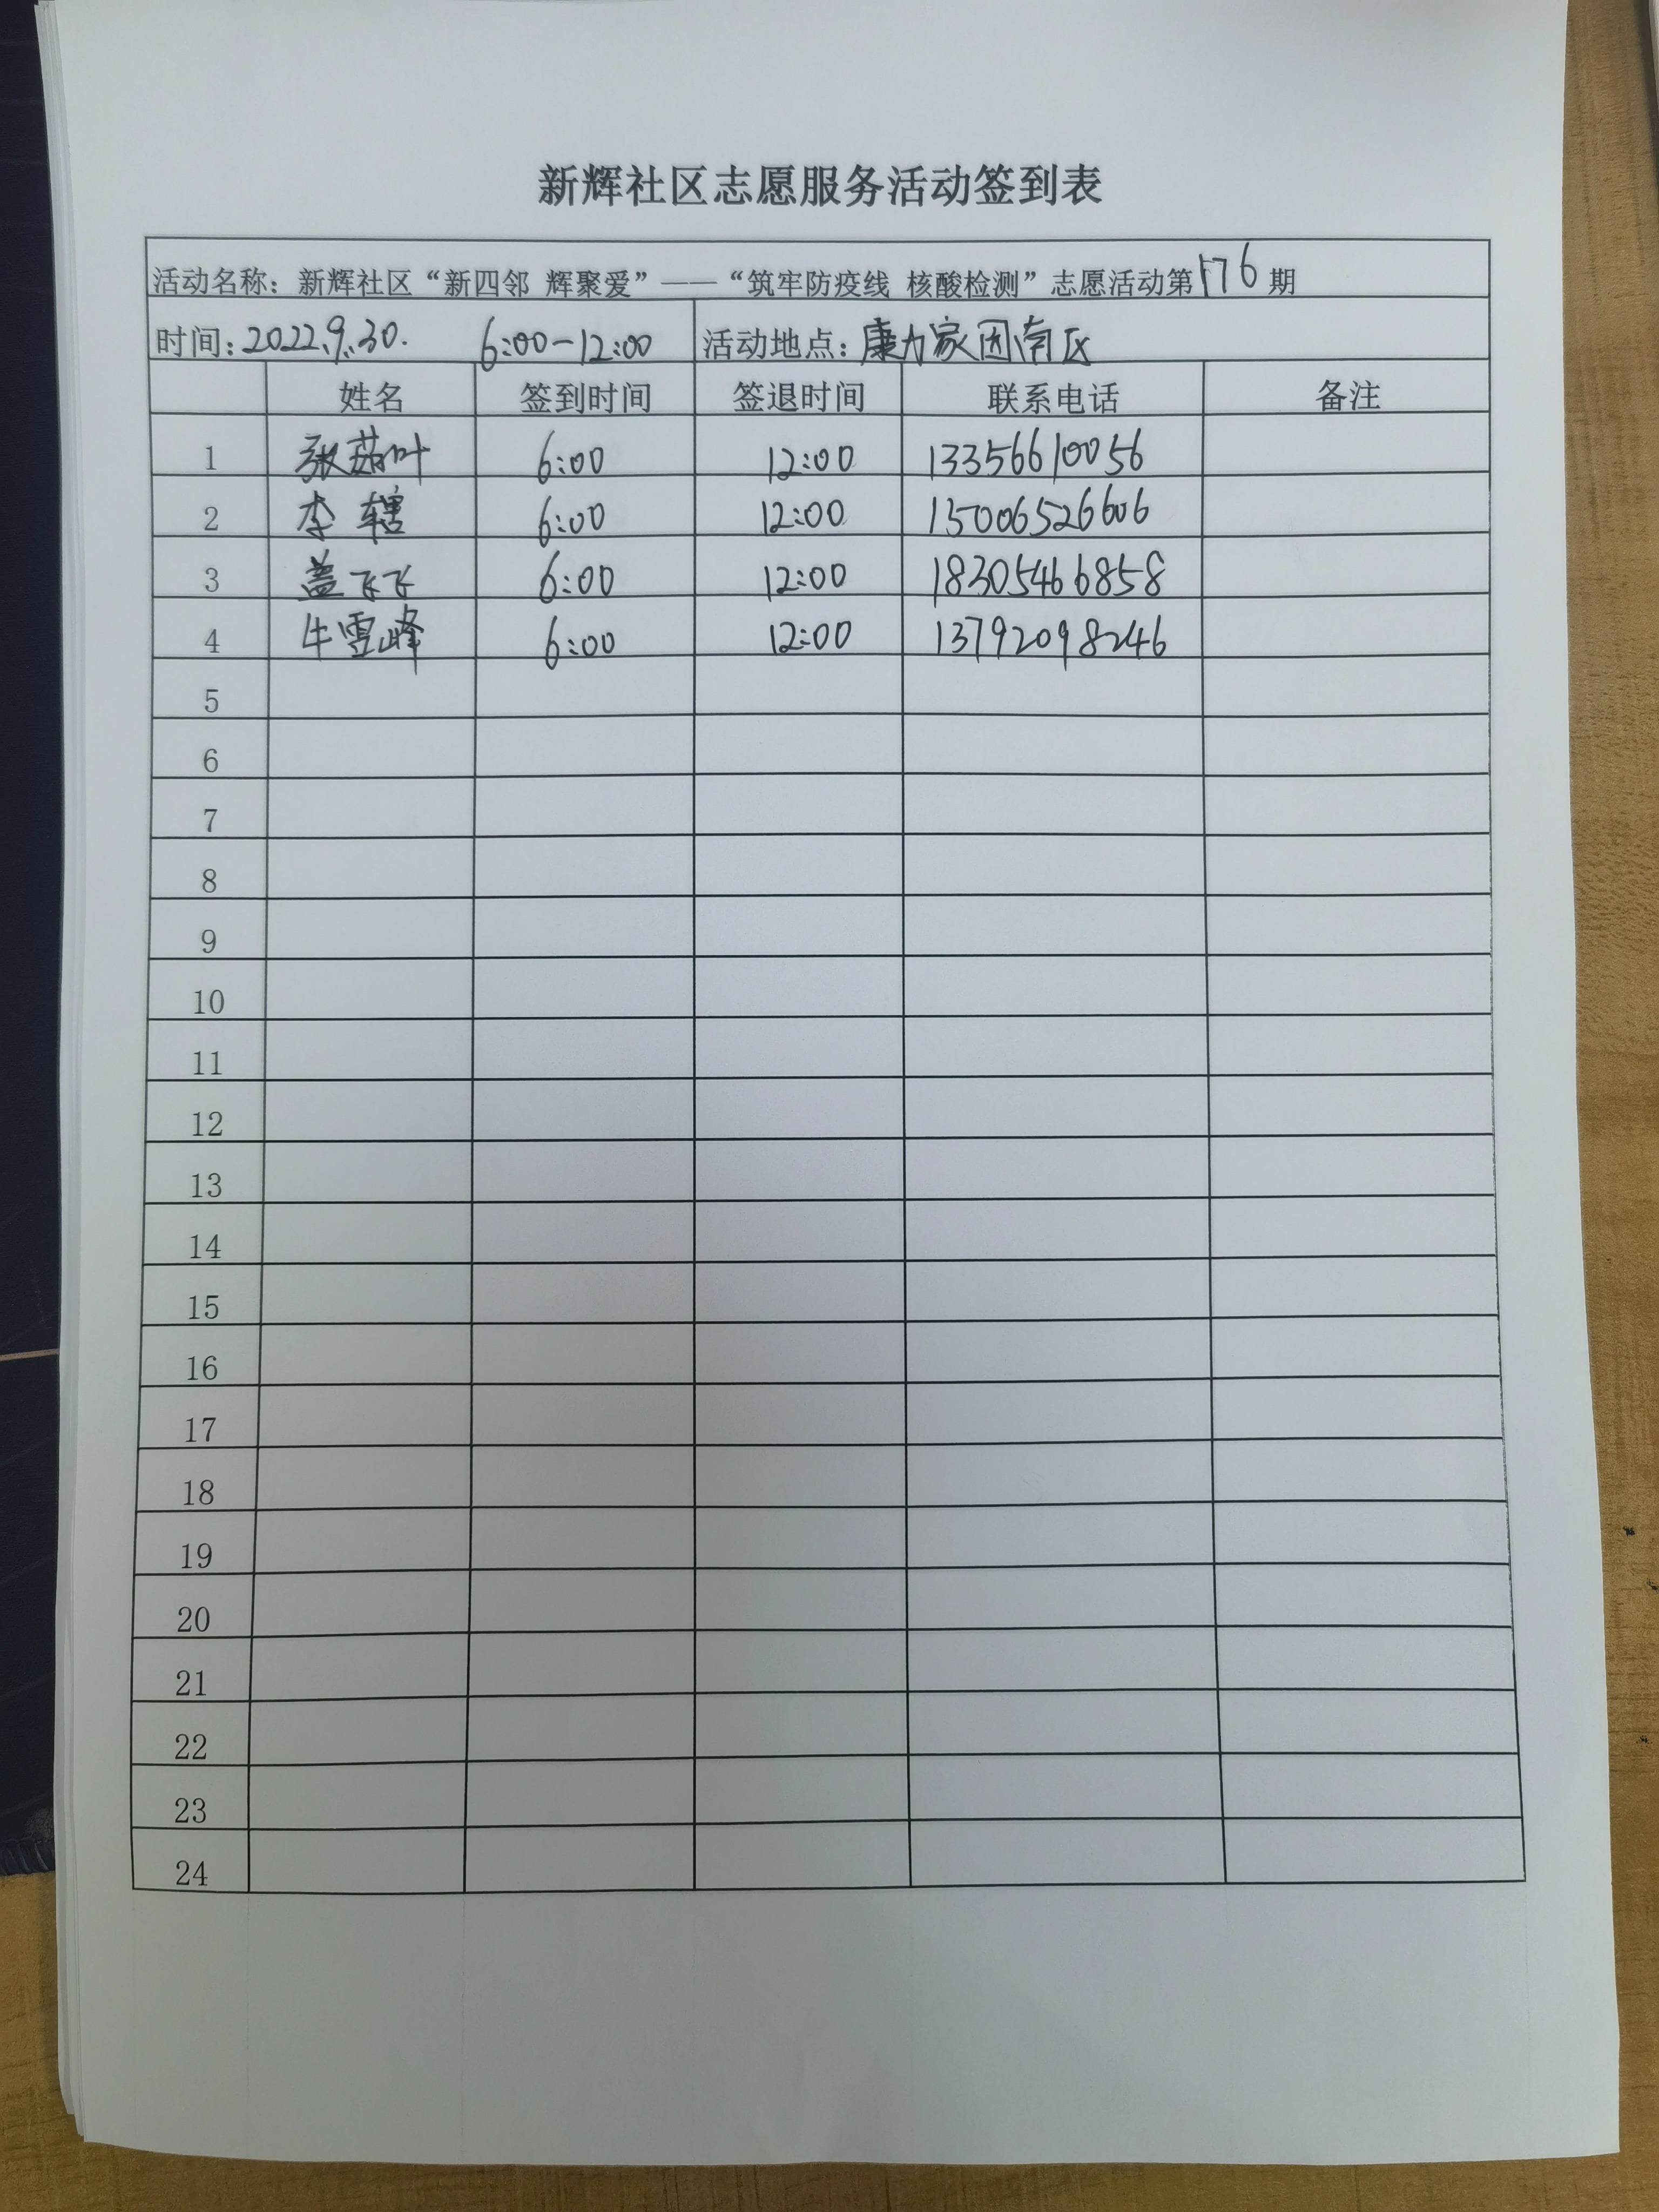 新辉社区志愿服务活动签到表
活动名称：新辉社区“新四邻 辉聚爱”——“筑牢防疫线 核酸检测”志愿活动第176期
时间：2022.9.30. 6:00-12:00 活动地点：康力家园南区
姓名 签到时间 签退时间 联系电话 备注
1 张茹叶 6:00 12:00 13356610056
2 李辖 6:00 12:00 15006526606
3 盖飞飞 6:00 12:00 18305466858
4 牛雪峰 6:00 12:00 13792098246
5
6
7
8
9
10
11
12
13
14
15
16
17
18
19
20
21
22
23
24